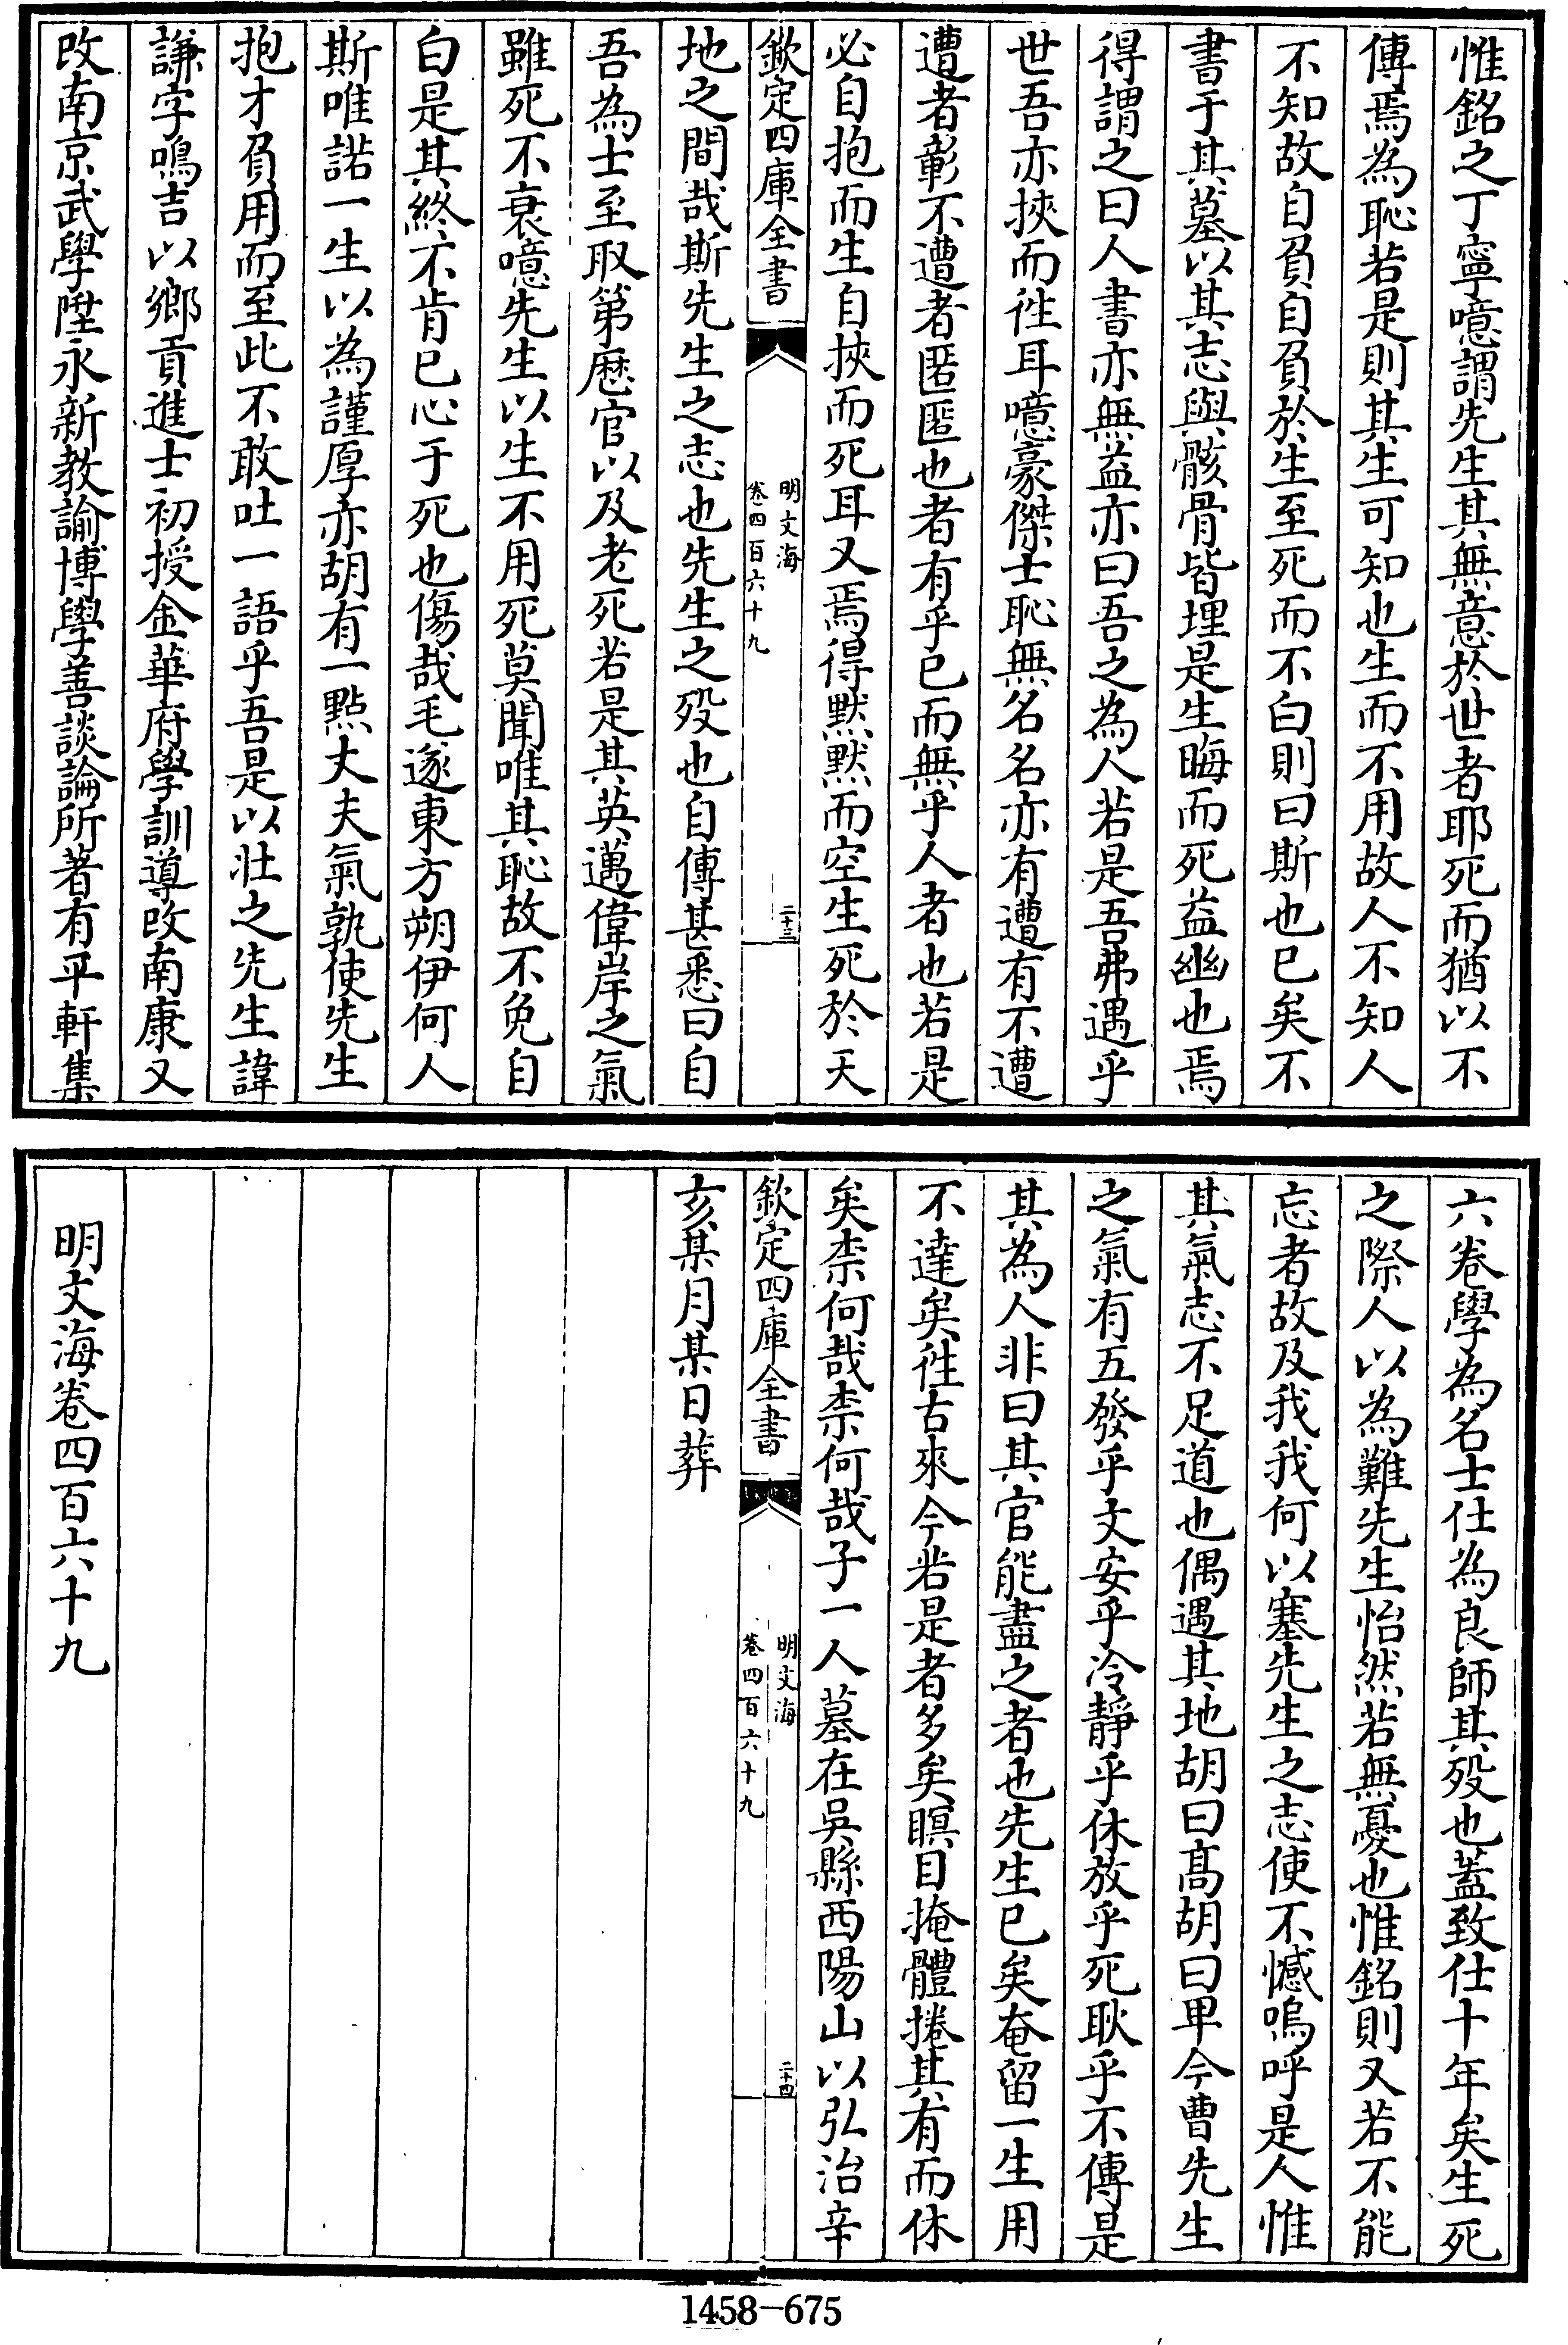 惟銘之丁寧噫謂先生其無意於世者耶死而猶以不
傳焉為恥若是則其生可知也生而不用故人不知人
不知故自負自負於生至死而不白則曰斯也已矣不
書于其墓以其志與骸骨皆埋是生晦而死益幽也焉
得謂之曰人書亦無益亦曰吾之為人若是吾弗遇乎
世吾亦挾而徃耳噫豪傑士恥無名名亦有遭有不遭
遭者彰不遭者匿匿也者有乎已而無乎人者也若是
必自抱而生自挾而死耳又焉得默默而空生死於天
欽定四庫全書
明文海
卷四百六十九
二十三
地之間哉斯先生之志也先生之歿也自傳甚悉曰自
吾為士至取第歴官以及老死若是其英邁偉岸之氣
雖死不衰噫先生以生不用死莫聞唯其恥故不免自
白是其終不肯已心于死也傷哉毛遂東方朔伊何人
斯唯諾一生以為謹厚亦胡有一點丈夫氣孰使先生
抱才負用而至此不敢吐一語乎吾是以壯之先生諱
謙字鳴吉以鄉貢進士初授金華府學訓導改南康又
改南京武學陞永新教諭博學善談論所著有平軒集
六卷學為名士仕為良師其歿也蓋致仕十年矣生死
之際人以為難先生怡然若無憂也惟銘則又若不能
忘者故及我我何以塞先生之志使不憾嗚呼是人惟
其氣志不足道也偶遇其地胡曰髙胡曰卑今曹先生
之氣有五發乎文安乎冷靜乎休放乎死耿乎不傳是
其為人非曰其官能盡之者也先生已矣奄留一生用
不達矣徃古來今若是者多矣瞑目掩體捲其有而休
矣柰何哉柰何哉子一人墓在吳縣西陽山以弘治辛
欽定四庫全書
明文海
卷四百六十九
二十四
亥某月某日葬
明文海卷四百六十九
1458—675